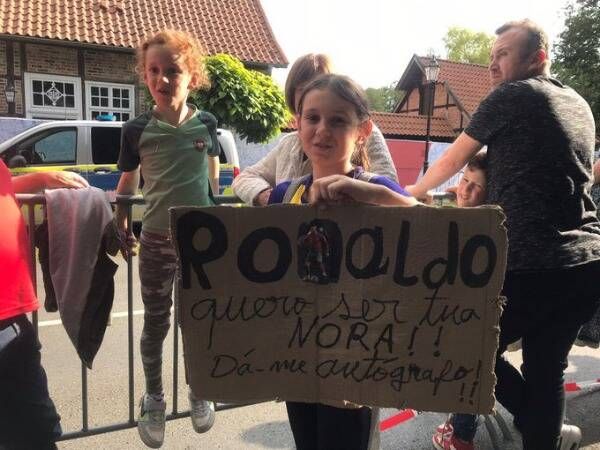 RoNaldo
quero ser tua
NORA!!
Dá-me autógrafo!!!